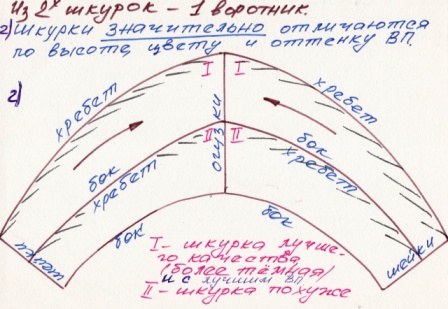 Из 2х шкурок – 1 воротник.
г) Шкурки значительно отличаются
по высоте, цвету и оттенку ВП.
г)
I I
хребет хребет
II II
огузки
бок бок
хребет хребет
бок бок
шейки шейки
I – шкурка лучше-
го качества
(более тёмная)
и с лучшим ВП
II – шкурка похуже